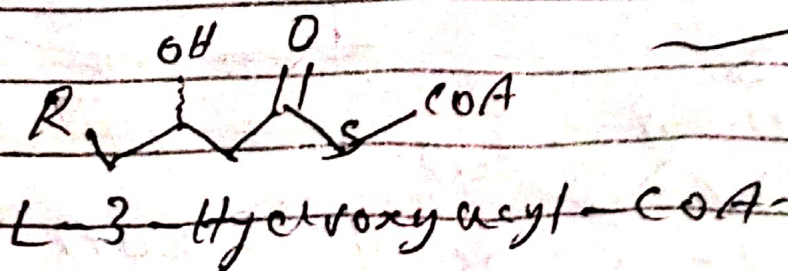 OH O
R S COA
L-3-Hydroxyacyl-COA-